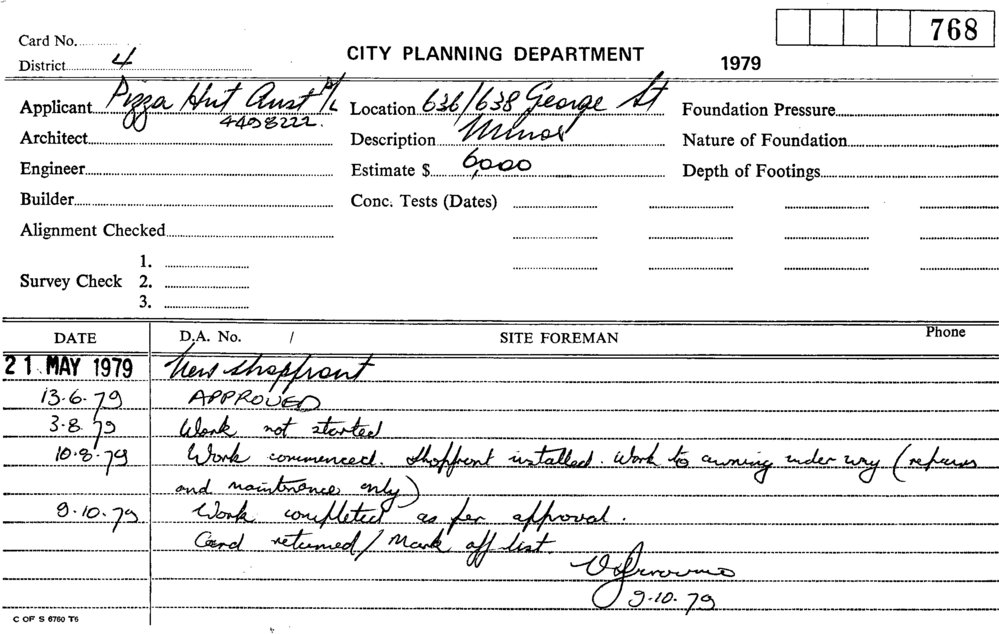 768
Card No.
CITY PLANNING DEPARTMENT 1979
District 4
Applicant Pizza Hut Aust P/L Location 636/638 George St Foundation Pressure
4498222.
Architect Description Minor Nature of Foundation
Engineer Estimate $ 6,000 Depth of Footings
Builder Conc. Tests (Dates)
Alignment Checked
1.
Survey Check 2.
3.
DATE D.A. No. / SITE FOREMAN Phone
21 MAY 1979 New shopfront
13.6.79 APPROVED
3.8.79 Work not started
10.8.79 Work commenced. Shopfront installed. Work to awning under way (repairs
and maintnance only)
9.10.79 Work completed as per approval.
Card returned / Mark off list.
9.10.79
C OF S 6760 T6